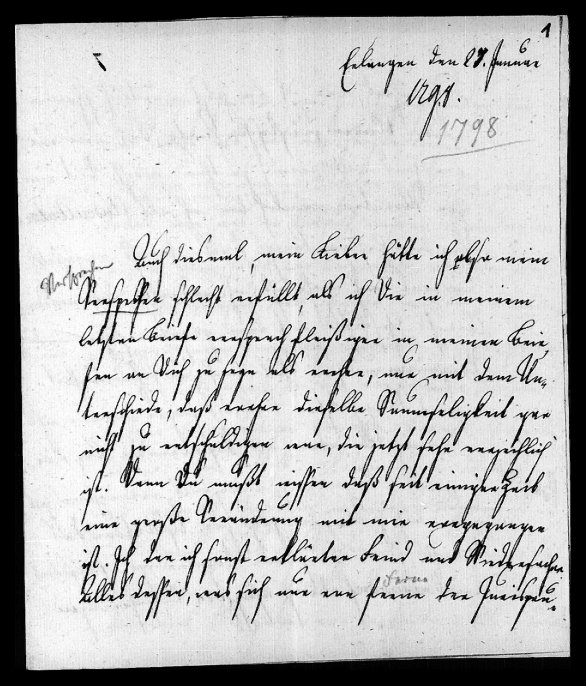 1
7
Erlangen den 27. Januar
1798.
1798
Auch diesmal, mein Lieber hätte ich also mein
Versprechen
Versprechen schlecht erfüllt, als ich Dir in meinem
letzten Briefe versprach fleißiger in meinen Brie,
fen an Dich zu seyn als vorher, nur mit dem Un-
terschiede, daß vorher dieselbe Saumseligkeit gar
nicht zu entschuldigen war, die jetzt sehr verzeihlich
ist. Denn Du mußt wissen daß seit einiger Zeit
eine große Veränderung mit mir vorgegangen
ist. Ich der ich sonst erklärter Feind und Wiedersacher
Ferne
Alles dessen, was sich nur von ferne der